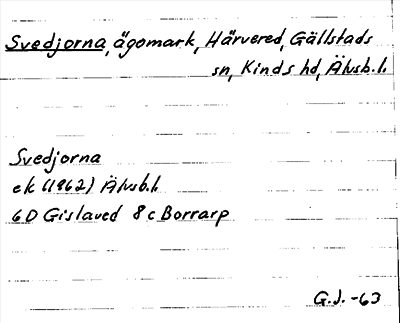 Svedjorna, ägomark, Härvered, Gällstads
sn, Kinds hd, Älvsb. l.
Svedjorna
ek (1962) Älvsb. l.
6D Gislaved 8 c Borrarp
G.J. -63